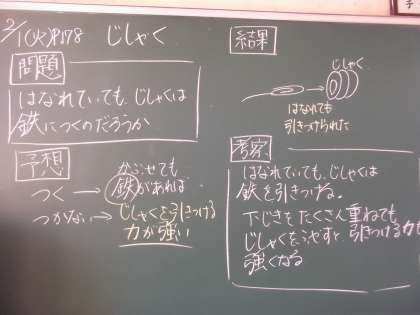 2/1(火)P.178 じしゃく
問題
はなれていても、じしゃくは
鉄につくのだろうか
予想
つく → かぶせても
鉄があれば
つかない → じしゃくを引きつける
力が強い
結果
じしゃく
はなれても
引きつけられた
考察
はなれていても、じしゃくは
鉄を引きつける。
下じきをたくさん重ねても
じしゃくをふやすと引きつける力も
強くなる